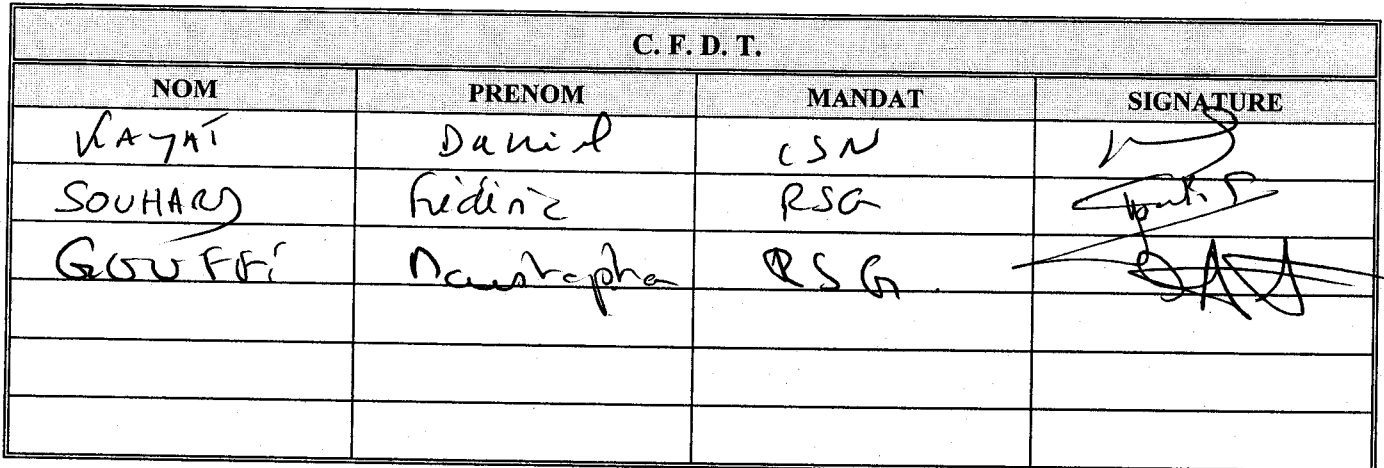 C. F. D. T.
NOM PRENOM MANDAT SIGNATURE
KAYAT Daniel CSN
SOUHARD Frédéric RSG
GOUFFI Moustapha RSG.